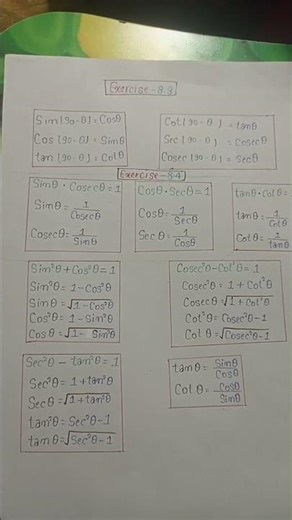 Exercise-8.3
Sin(90-θ)=Cosθ
Cos(90-θ)=Sinθ
tan(90-θ)=Cotθ
Cot(90-θ)=tanθ
Sec(90-θ)=Cosecθ
Cosec(90-θ)=Secθ
Exercise-8.4
Sinθ·Cosecθ=1
Sinθ=1/Cosecθ
Cosecθ=1/Sinθ
Cosθ·Secθ=1
Cosθ=1/Secθ
Secθ=1/Cosθ
tanθ·Cotθ=1
tanθ=1/Cotθ
Cotθ=1/tanθ
Sin²θ+Cos²θ=1
Sin²θ=1-Cos²θ
Sinθ=√1-Cos²θ
Cos²θ=1-Sin²θ
Cosθ=√1-Sin²θ
Cosec²θ-Cot²θ=1
Cosec²θ=1+Cot²θ
Cosecθ=√1+Cot²θ
Cot²θ=Cosec²θ-1
Cotθ=√Cosec²θ-1
Sec²θ-tan²θ=1
Sec²θ=1+tan²θ
Secθ=√1+tan²θ
tan²θ=Sec²θ-1
tanθ=√Sec²θ-1
tanθ=Sinθ/Cosθ
Cotθ=Cosθ/Sinθ